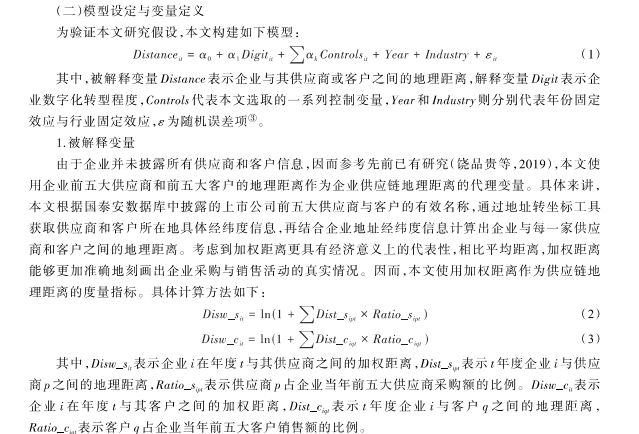 (二)模型设定与变量定义
为验证本文研究假设,本文构建如下模型:
Distance_{it} = α_0 + α_1Digit_{it} + ∑α_kControls_{it} + Year + Industry + ε_{it} (1)
其中,被解释变量 Distance 表示企业与其供应商或客户之间的地理距离,解释变量 Digit 表示企
业数字化转型程度,Controls 代表本文选取的一系列控制变量,Year 和 Industry 则分别代表年份固定
效应与行业固定效应,ε 为随机误差项③。
1.被解释变量
由于企业并未披露所有供应商和客户信息,因而参考先前已有研究(饶品贵等,2019),本文使
用企业前五大供应商和前五大客户的地理距离作为企业供应链地理距离的代理变量。具体来讲,
本文根据国泰安数据库中披露的上市公司前五大供应商与客户的有效名称,通过地址转坐标工具
获取供应商和客户所在地具体经纬度信息,再结合企业地址经纬度信息计算出企业与每一家供应
商和客户之间的地理距离。考虑到加权距离更具有经济意义上的代表性,相比平均距离,加权距离
能够更加准确地刻画出企业采购与销售活动的真实情况。因而,本文使用加权距离作为供应链地
理距离的度量指标。具体计算方法如下:
Disw_s_{it} = ln(1 + ∑Dist_s_{ipt} × Ratio_s_{ipt}) (2)
Disw_c_{it} = ln(1 + ∑Dist_c_{iqt} × Ratio_c_{iqt}) (3)
其中,Disw_s_{it}表示企业 i 在年度 t 与其供应商之间的加权距离,Dist_s_{ipt}表示 t 年度企业 i 与供应
商 p 之间的地理距离,Ratio_s_{ipt}表示供应商 p 占企业当年前五大供应商采购额的比例。Disw_c_{it}表示
企业 i 在年度 t 与其客户之间的加权距离,Dist_c_{iqt}表示 t 年度企业 i 与客户 q 之间的地理距离,
Ratio_c_{iqt}表示客户 q 占企业当年前五大客户销售额的比例。